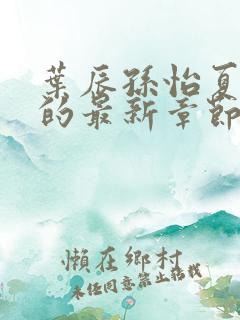 葉辰孫怡夏
的最新章節
懶在鄉村
未經同意禁止搭載